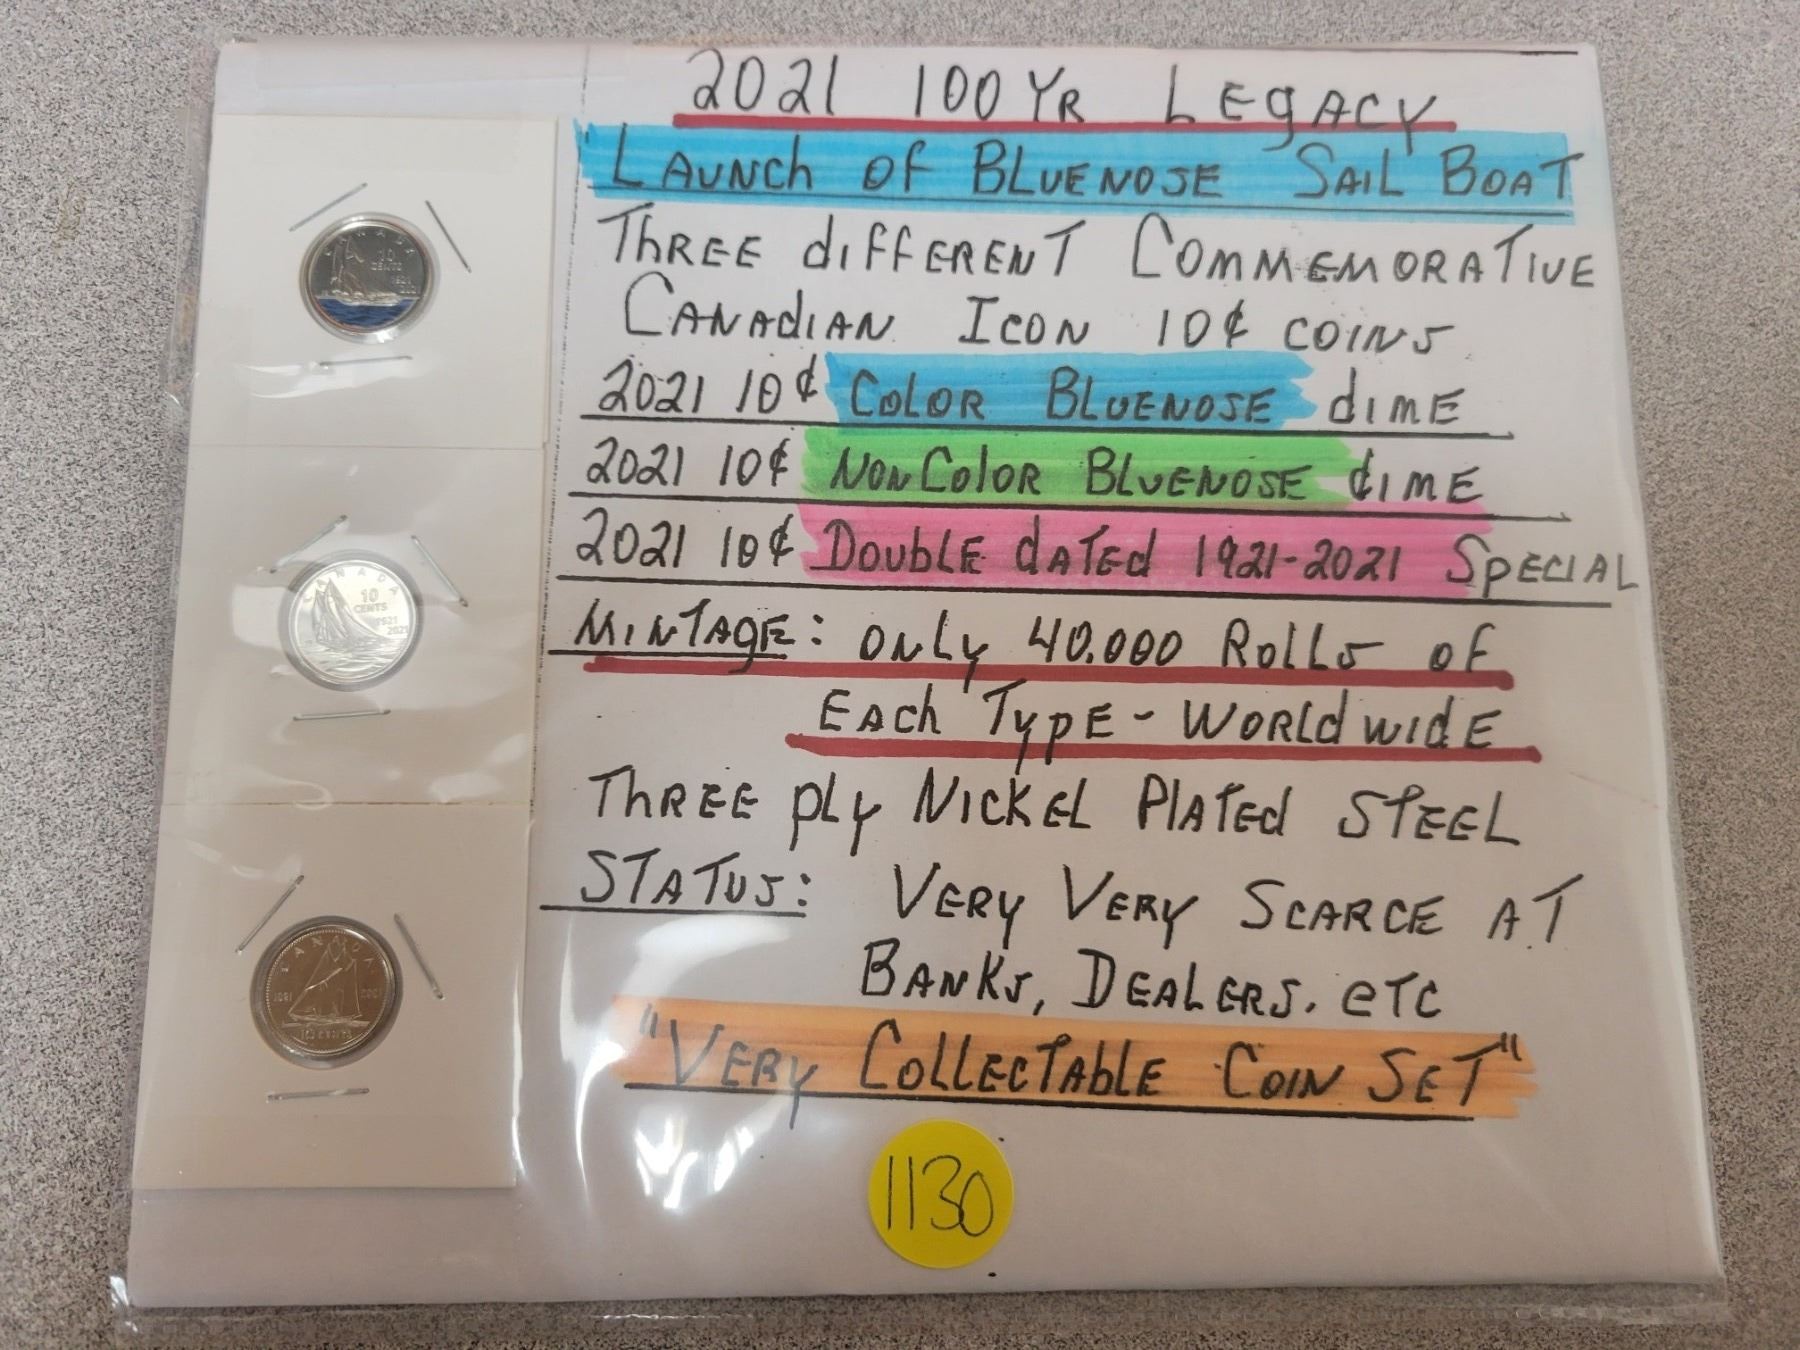 2021 100 YR LEGACY
"LAUNCH OF BLUENOSE SAIL BOAT
THREE diffERENT COMMEMORATIVE
CANADIAN ICON 10¢ COINS
2021 10¢ COLOR BLUENOSE dIME
2021 10¢ NON COLOR BLUENOSE dIME
2021 10¢ DOUBLE dATEd 1921-2021 SPECIAL
MINTAGE: ONLY 40,000 ROLLS OF
EACH TYPE - WORLdWIdE
THREE PLY NICKEL PLATEd STEEL
STATUS: VERY VERY SCARCE AT
BANKS, DEALERS, ETC
"VERY COLLECTABLE COIN SET"
1130
CANADA
10
CENTS
1921
CANADA
10
CENTS
1921
2021
CANADA
1921 2021
10 CENTS